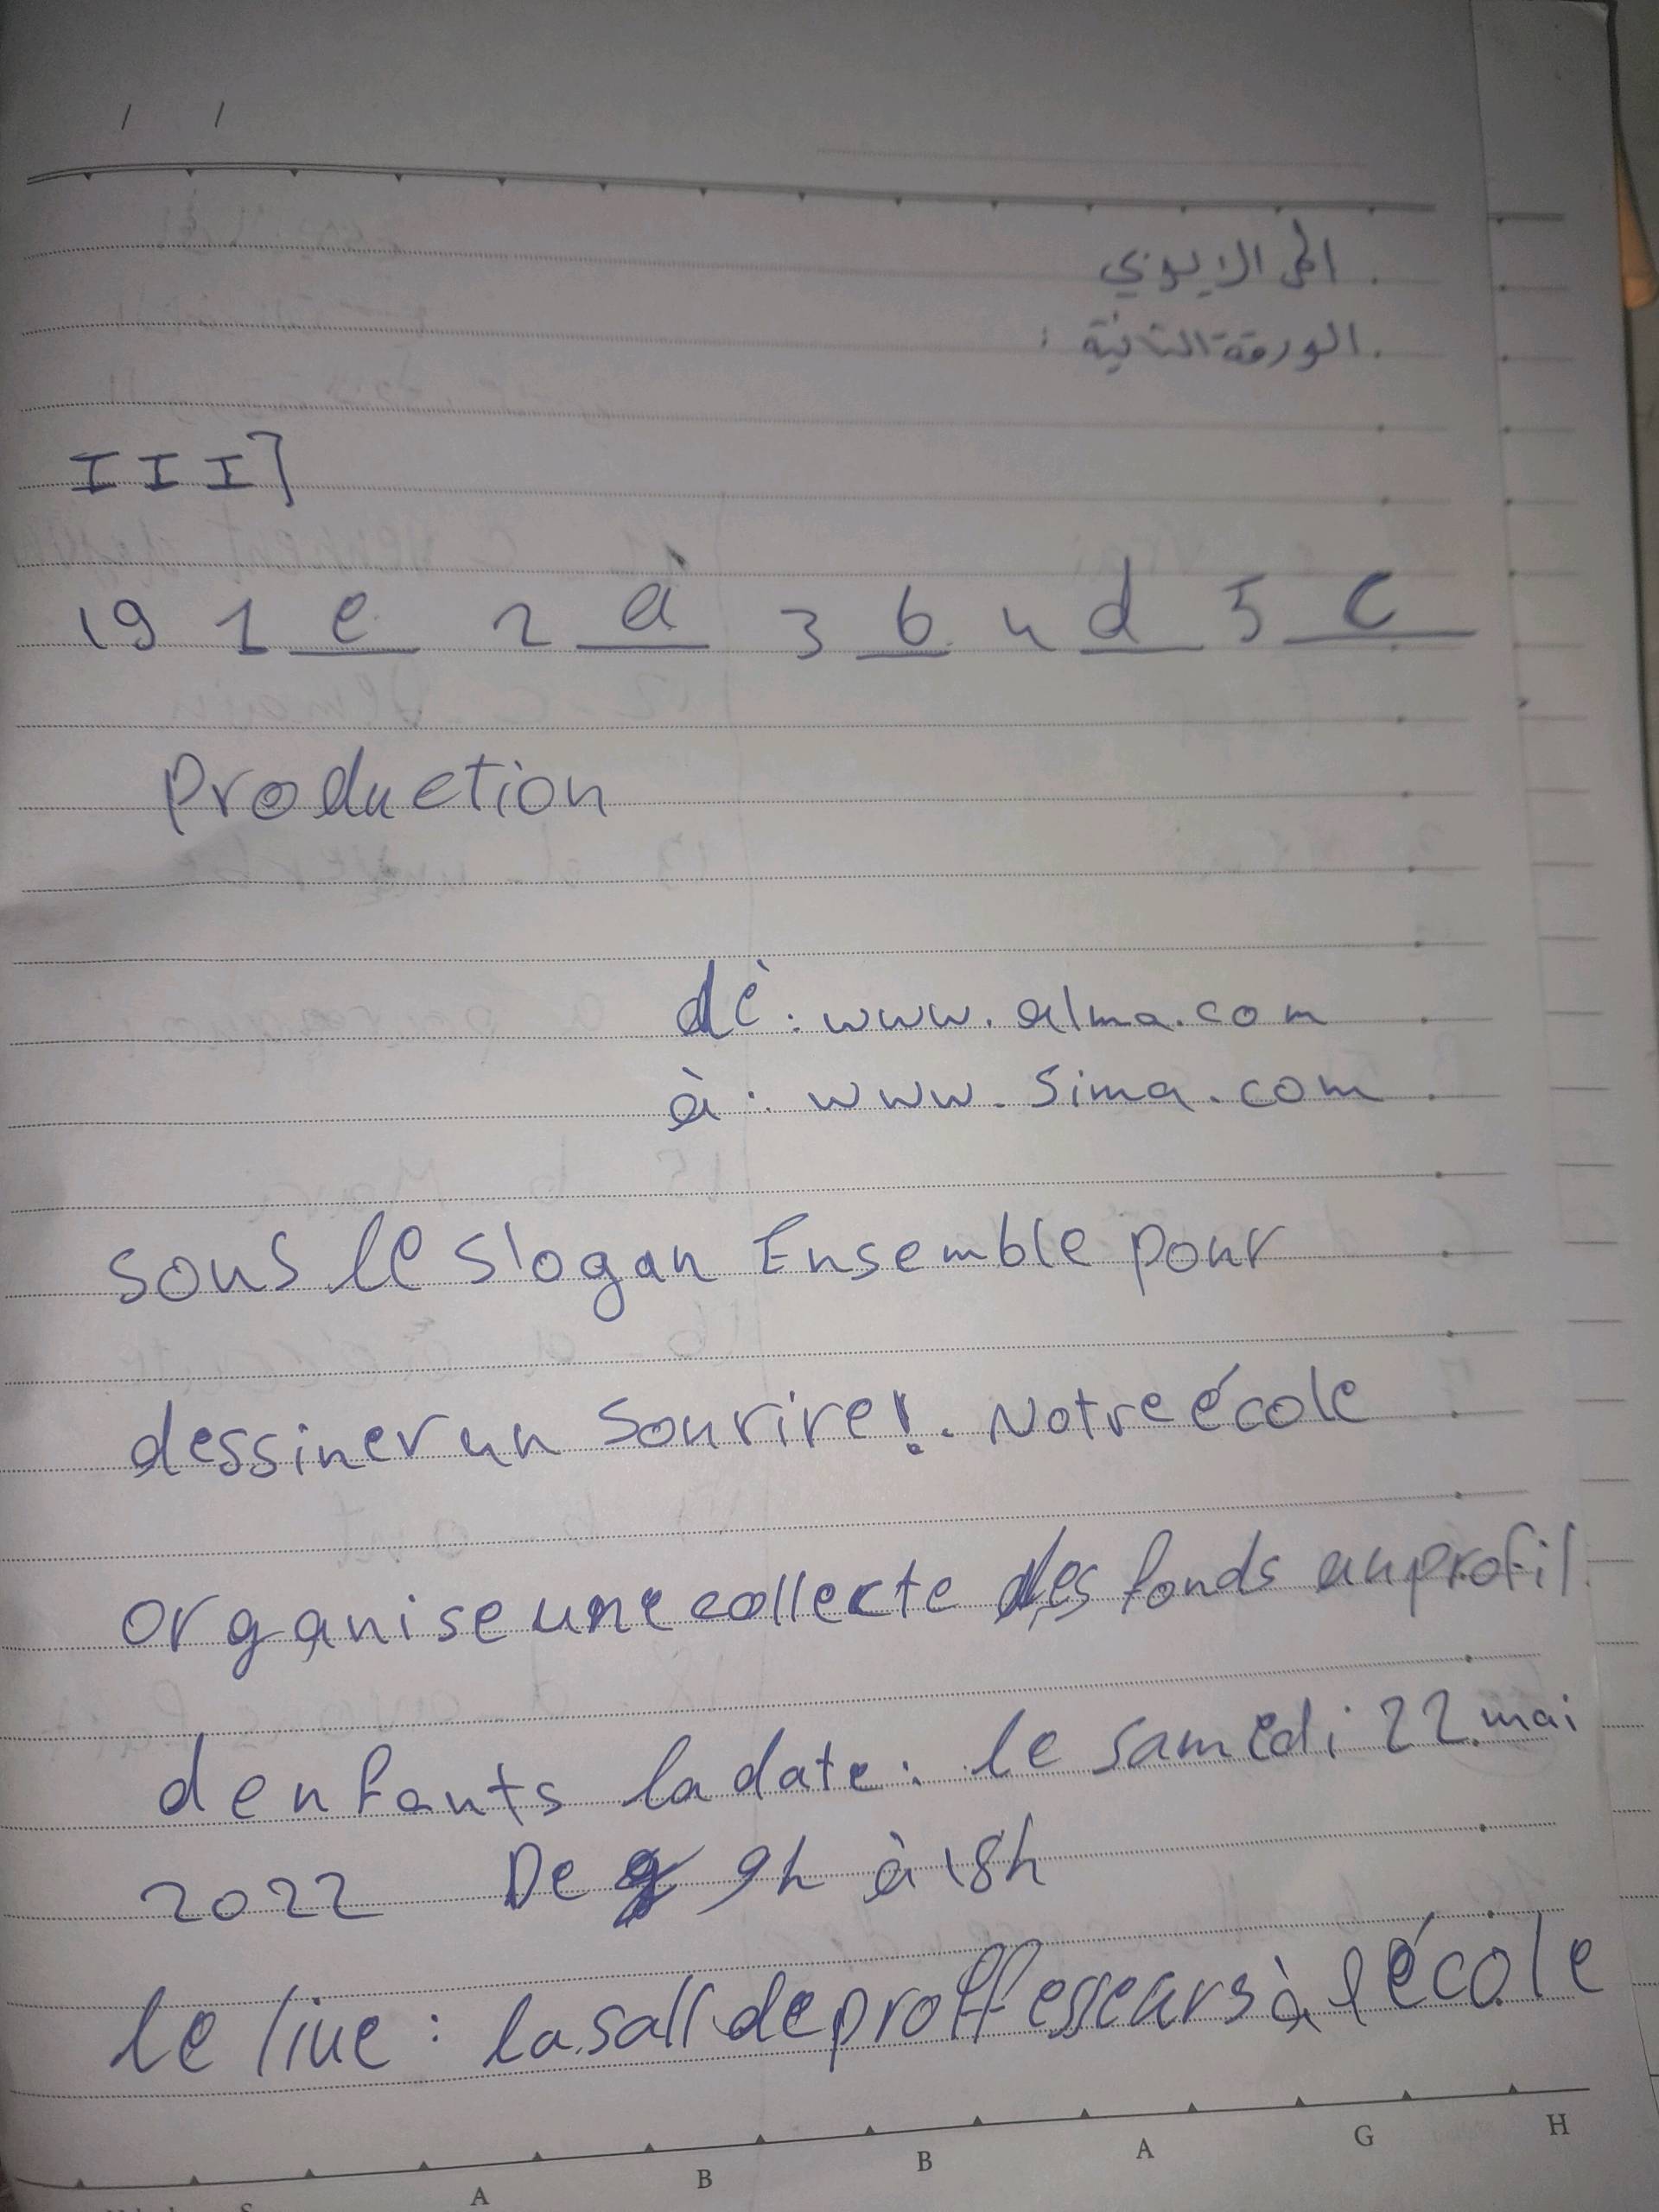 / /
. المى الايوبي
. الورقة الثانية :
III]
19 1 e 2 a 3 b 4 d 5 c
Production
dè : www.alma.com
à : www.Sima.com
sous le slogan Ensemble pour
dessiner un sourire!. Notre école
organise une collecte des fonds au profil
denfants la date : le samedi 22 mai
2022 De 9h à 18h
le liue : la sall de proffesseurs à l école
A B B A G H